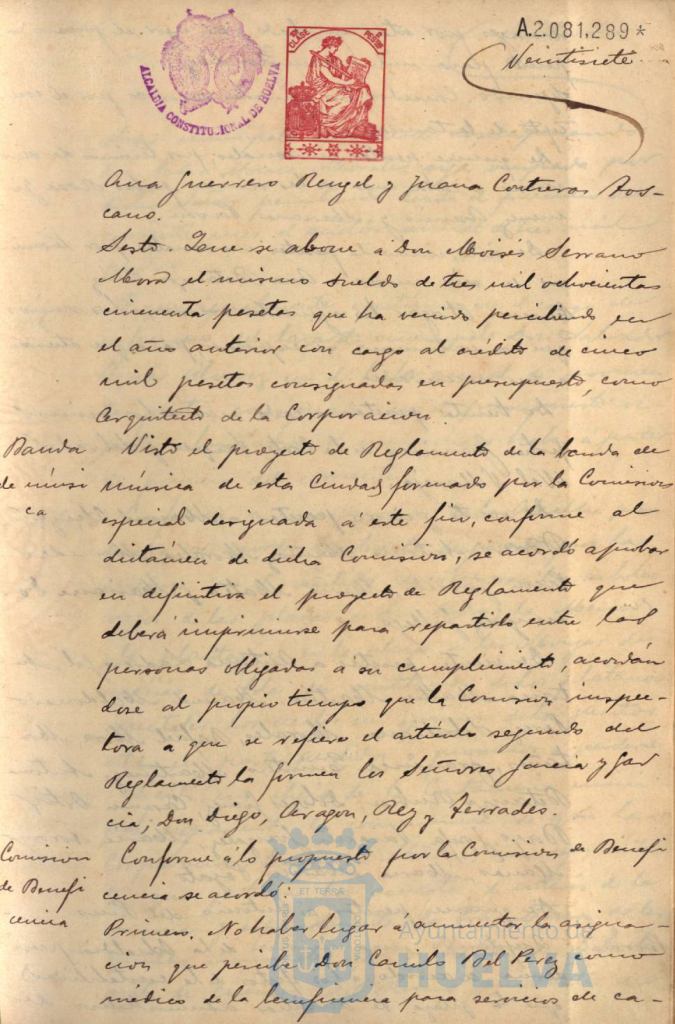 A.2.081,289*
Veintisiete
CLASE PESETAS
ALCALDIA CONSTITUCIONAL DE HUELVA
Ana Guerrero Rengel y Juana Contreras Tos-
cano.
Sesto. Que se abone á Don Moisés Serrano
Mora el mismo sueldo de tres mil ochocientas
cincuenta pesetas que ha venido percibiendo en
el año anterior con cargo al crédito de cinco
mil pesetas consignadas en presupuesto, como
Arquitecto de la Corporacion.
Banda
de músi
ca
Visto el proyecto de Reglamento de la banda de
música de esta Ciudad, formado por la Comision
especial designada á este fin, conforme al
dictámen de dicha Comision, se acordó aprobar
en definitiva el proyecto de Reglamento que
deberá imprimirse para repartirlo entre las
personas obligadas á su cumplimiento, acordán
dose al propio tiempo que la Comision inspec-
tora á que se refiere el artículo segundo del
Reglamento la formen los Señores Garcia y Gar
cia, Don Diego, Aragon, Rey y Terrades.
Comision
de Benefi
cencia
Conforme á lo propuesto por la Comision de Benefi
cencia se acordó:
Primero. No haber lugar á aumentar la asigna-
cion que percibe Don Camilo Bel Perez como
médico de la beneficencia para servicios de ca-
ET TERRÆ
Ayuntamiento de
HUELVA